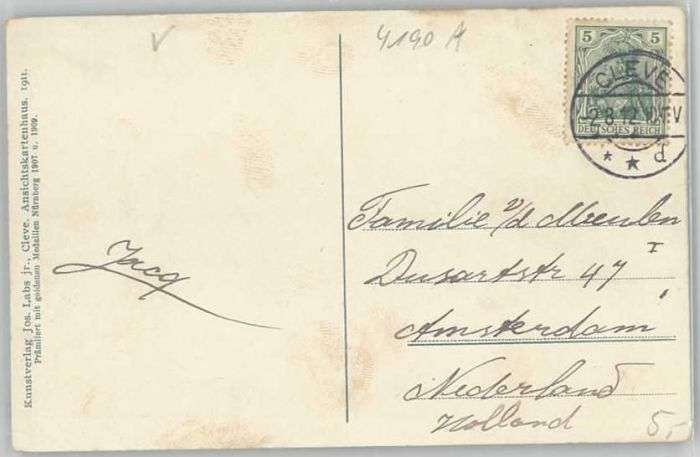 V
4190 A
5 5
DEUTSCHES REICH
CLEVE
2.8.12. V
* * d
Kunstverlag Jos. Labs jr., Cleve. Ansichtskartenhaus. 1911.
Prämiiert mit goldenen Medaillen Nürnberg 1907 u. 1909.
Jacq
Familie v/d Meulen
Dusartstr 47 I
Amsterdam
Nederland
Holland
5,-